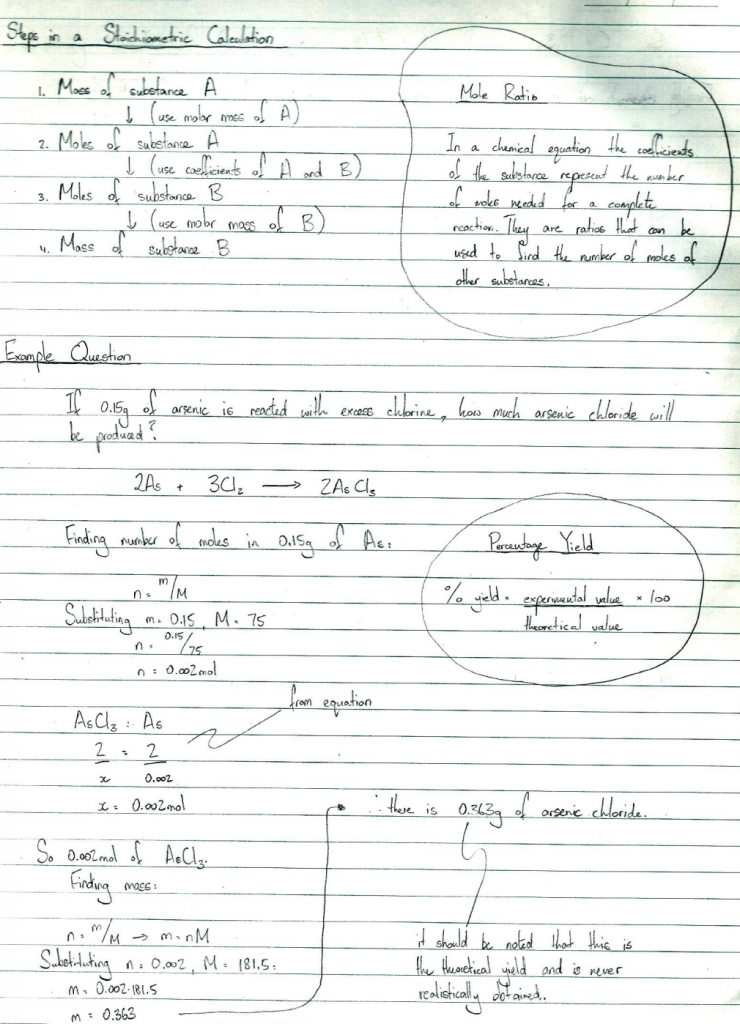 Steps in a Stoichiometric Calculation
1. Mass of substance A
↓ (use molar mass of A)
2. Moles of substance A
↓ (use coefficients of A and B)
3. Moles of substance B
↓ (use molar mass of B)
4. Mass of substance B
Mole Ratio
In a chemical equation the coefficients
of the substance represent the number
of moles needed for a complete
reaction. They are ratios that can be
used to find the number of moles of
other substances.
Example Question
If 0.15g of arsenic is reacted with excess chlorine, how much arsenic chloride will
be produced?
2As + 3Cl₂ → 2AsCl₃
Finding number of moles in 0.15g of As:
n = m/M
Substituting m = 0.15, M = 75
n = 0.15/75
n = 0.002mol
Percentage Yield
% yield = experimental value × 100
theoretical value
from equation
AsCl₃ : As
2 = 2
x 0.002
x = 0.002mol
So 0.002mol of AsCl₃.
Finding mass:
n = m/M → m = nM
Substituting n = 0.002, M = 181.5:
m = 0.002·181.5
m = 0.363
∴ there is 0.363g of arsenic chloride.
it should be noted that this is
the theoretical yield and is never
realistically obtained.